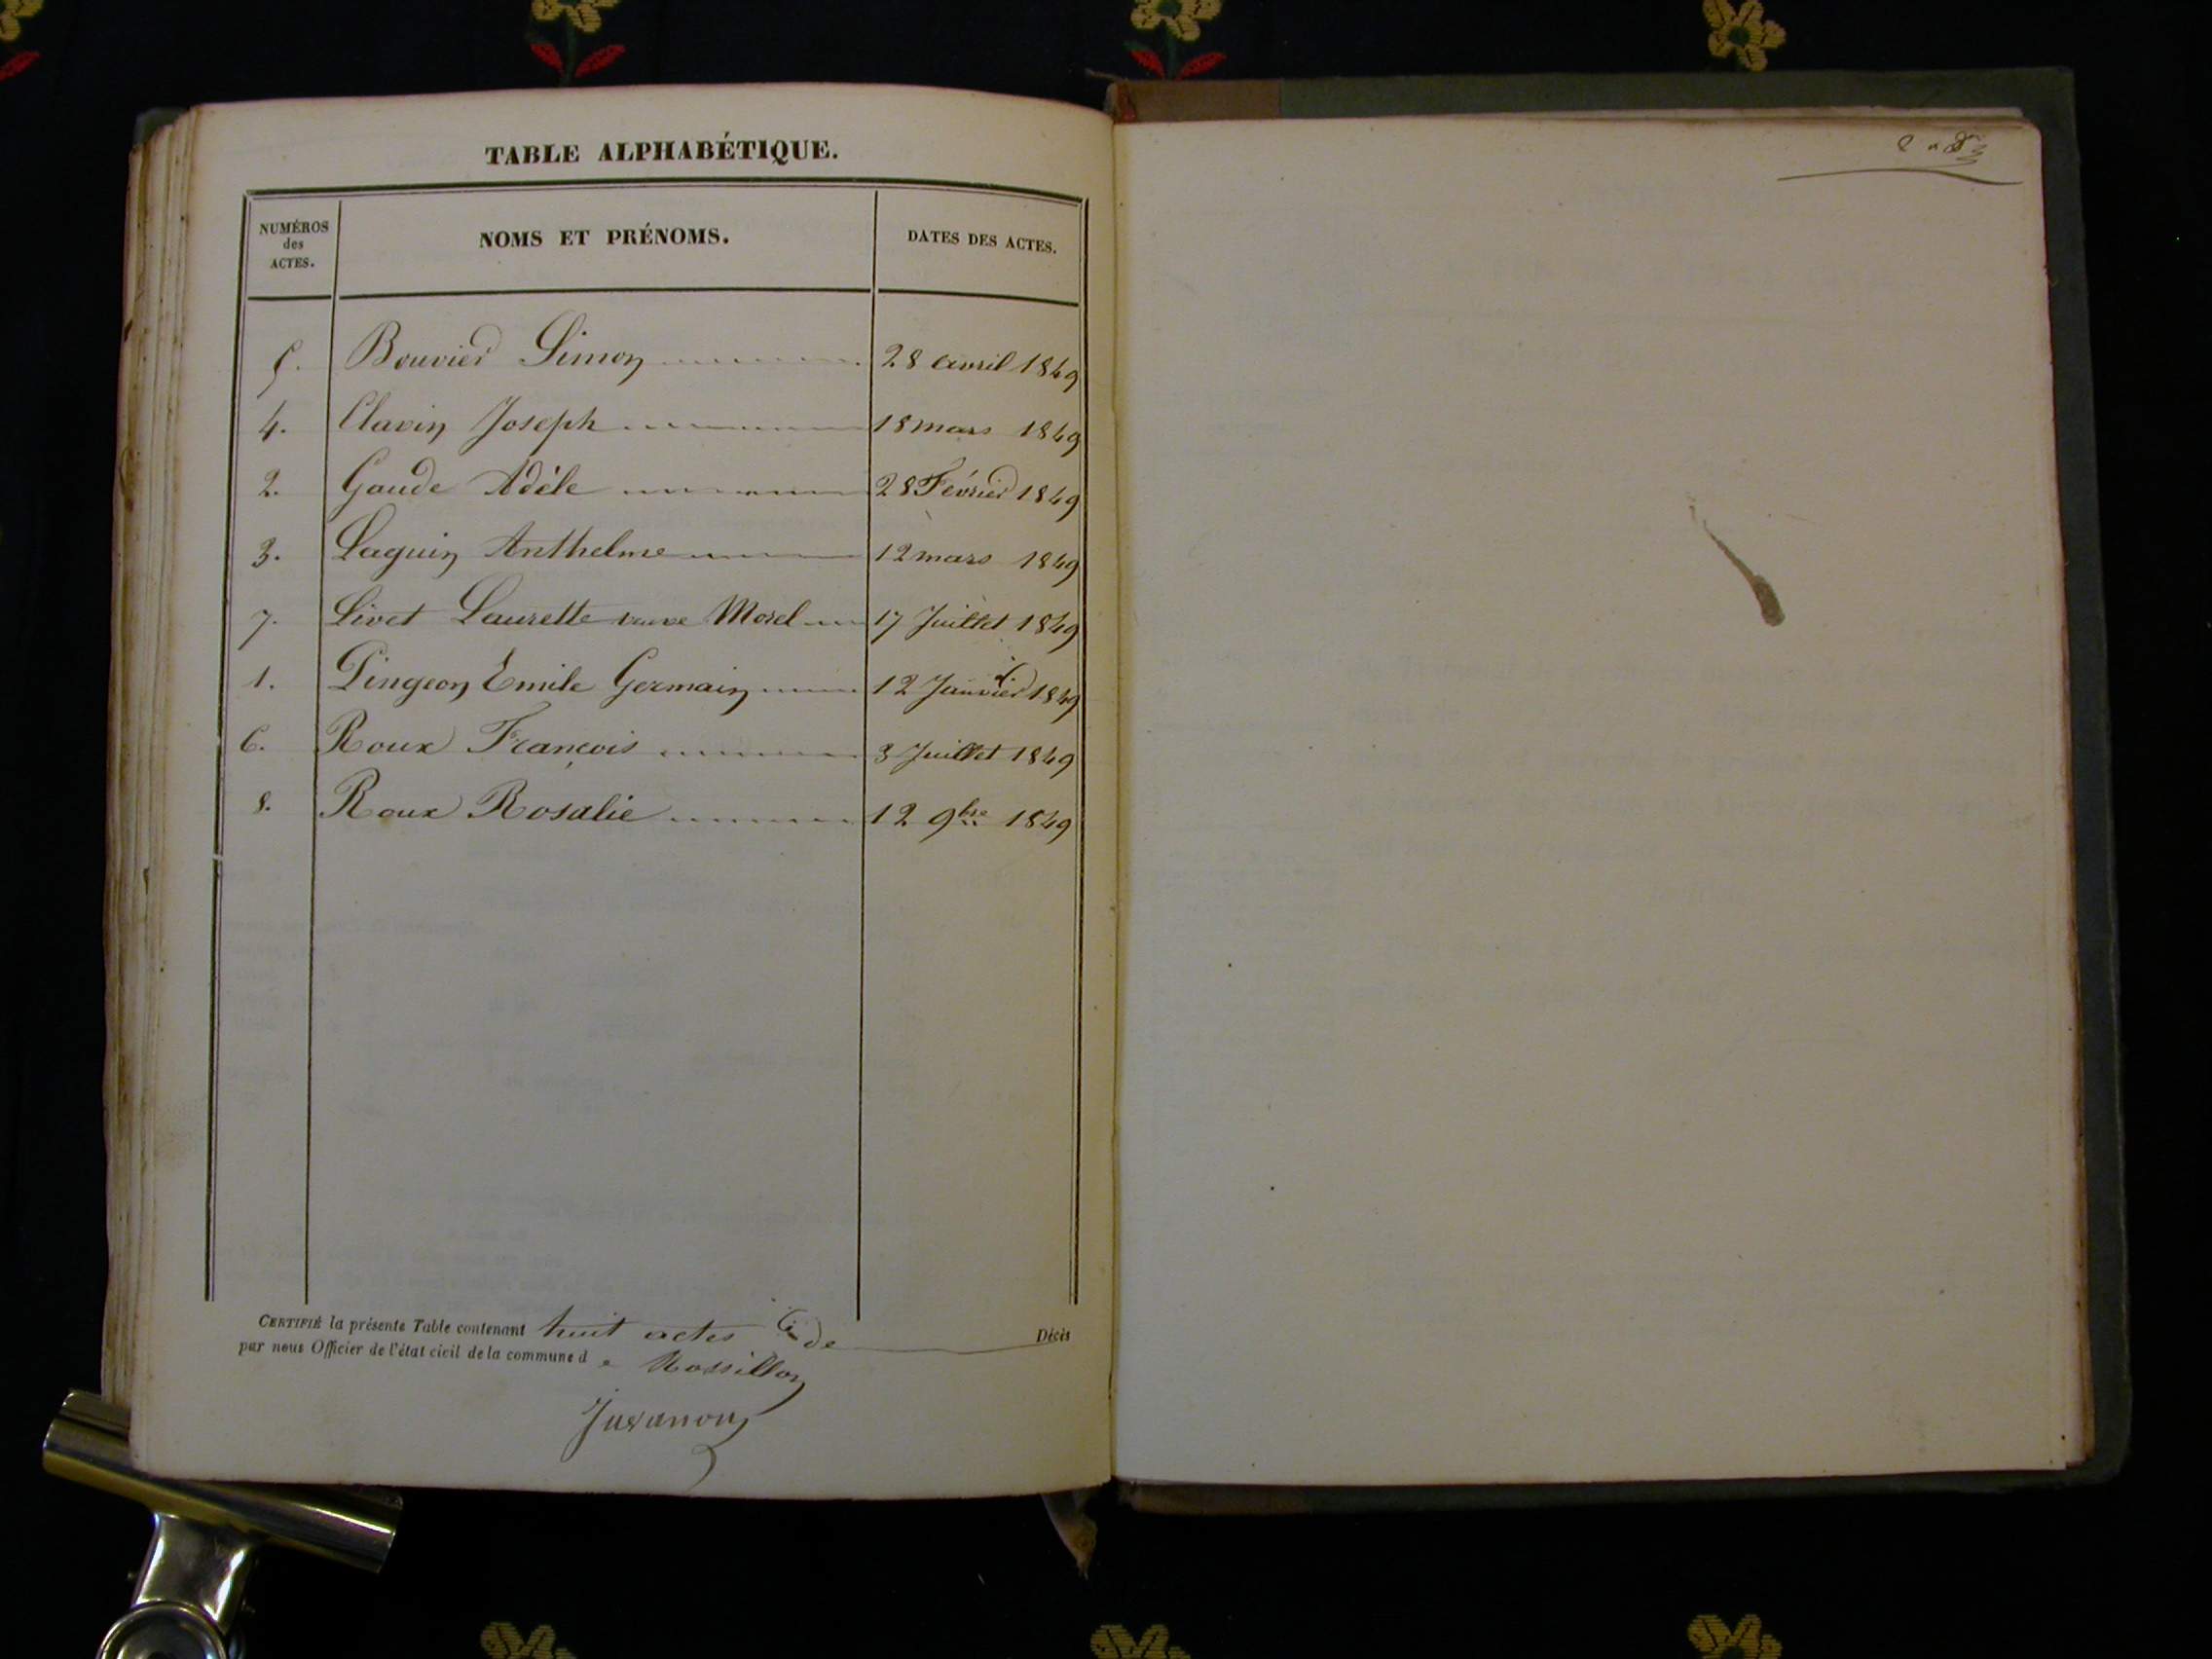 TABLE ALPHABÉTIQUE.
NUMÉROS des ACTES. NOMS ET PRÉNOMS. DATES DES ACTES.
5. Bouvier Simon 28 avril 1849
4. Clavin Joseph 18 mars 1849
2. Gaude Adèle 28 Février 1849
3. Laguin Anthelme 12 mars 1849
7. Livet Laurette veuve Morel 17 Juillet 1849
1. Pingeon Emile Germain 12 Janvier 1849
6. Roux François 3 Juillet 1849
8. Roux Rosalie 12 9bre 1849
CERTIFIÉ la présente Table contenant huit actes de Décès
par nous Officier de l'état civil de la commune d e Rossillon